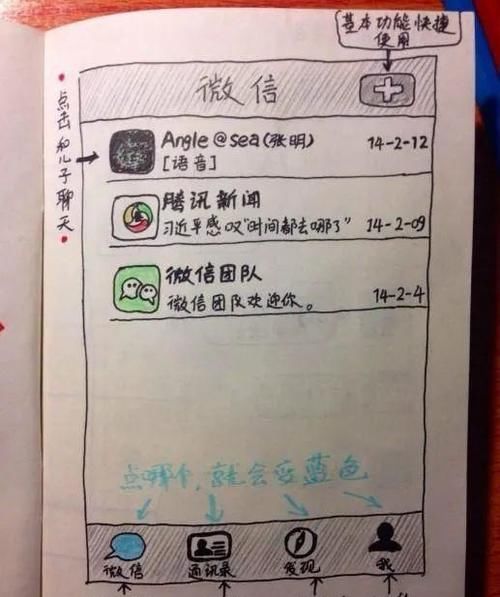 基本功能快捷
使用
微信
点击和儿子聊天
Angle@sea(张明)
14-2-12
[语音]
腾讯新闻
习近平感叹"时间都去哪了"
14-2-09
微信团队
微信团队欢迎你。
14-2-4
点哪个,就会变蓝色
微信
通讯录
发现
我